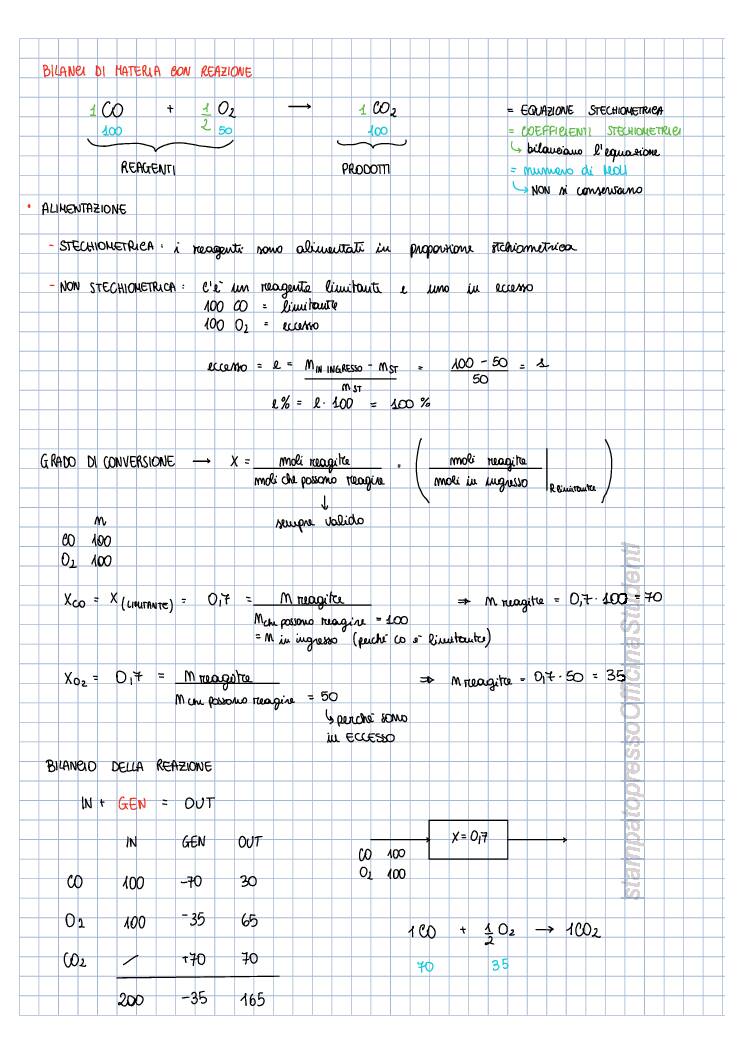 BILANCI DI MATERIA CON REAZIONE
1 CO + 1/2 O2 → 1 CO2 = EQUAZIONE STECHIOMETRICA
100 50 100 = COEFFICIENTI STECHIOMETRICI
↳ bilanciano l'equazione
REAGENTI PRODOTTI = numero di MOLI
↳ NON si conservano
• ALIMENTAZIONE
- STECHIOMETRICA: i reagenti sono alimentati in proporzione stchiometrica
- NON STECHIOMETRICA: C'è un reagente limitante e uno in eccesso
100 CO = limitante
100 O2 = eccesso
eccesso = e = (n IN INGRESSO - n ST) / n ST = (100 - 50) / 50 = 1
e% = e · 100 = 100 %
GRADO DI CONVERSIONE → X = moli reagite / moli che possono reagire = ( moli reagite / moli in ingresso | R limitante )
↓
sempre valido
n
CO 100
O2 100
XCO = X (LIMITANTE) = 0,7 = n reagite / n che possono reagire = 100 ⇒ n reagite = 0,7 · 100 = 70
= n in ingresso (perché co è limitante)
XO2 = 0,7 = n reagite / n che possono reagire = 50 ⇒ n reagite = 0,7 · 50 = 35
↳ perché sono
in ECCESSO
BILANCIO DELLA REAZIONE
IN + GEN = OUT
IN GEN OUT
CO 100 -70 30
O2 100 -35 65
CO2 / +70 70
200 -35 165
X = 0,7
CO 100
O2 100
1 CO + 1/2 O2 → 1 CO2
70 35
stampatopressoOfficinaStudenti